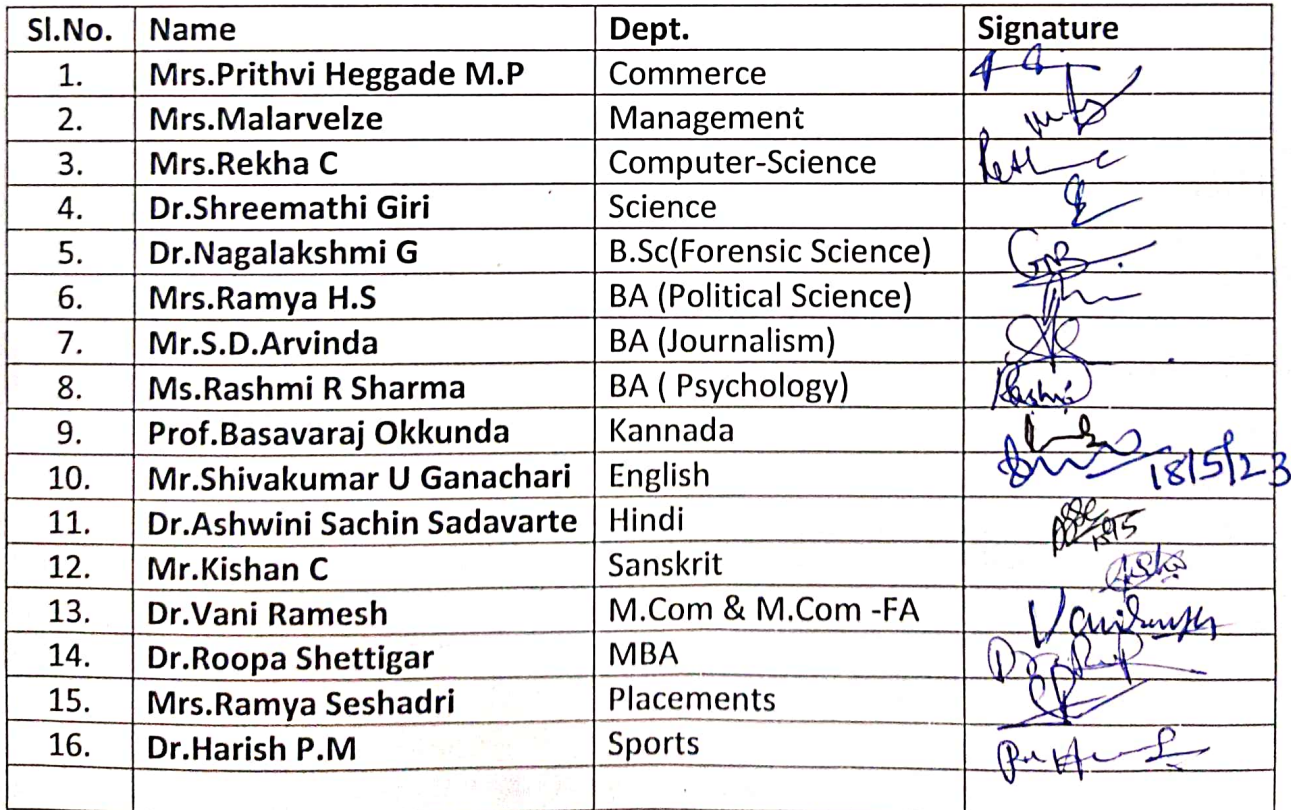 Sl.No. Name Dept. Signature
1. Mrs.Prithvi Heggade M.P Commerce
2. Mrs.Malarvelze Management
3. Mrs.Rekha C Computer-Science
4. Dr.Shreemathi Giri Science
5. Dr.Nagalakshmi G B.Sc(Forensic Science)
6. Mrs.Ramya H.S BA (Political Science)
7. Mr.S.D.Arvinda BA (Journalism)
8. Ms.Rashmi R Sharma BA ( Psychology) Rashmi
9. Prof.Basavaraj Okkunda Kannada
10. Mr.Shivakumar U Ganachari English 18/5/23
11. Dr.Ashwini Sachin Sadavarte Hindi
12. Mr.Kishan C Sanskrit
13. Dr.Vani Ramesh M.Com & M.Com -FA
14. Dr.Roopa Shettigar MBA
15. Mrs.Ramya Seshadri Placements
16. Dr.Harish P.M Sports